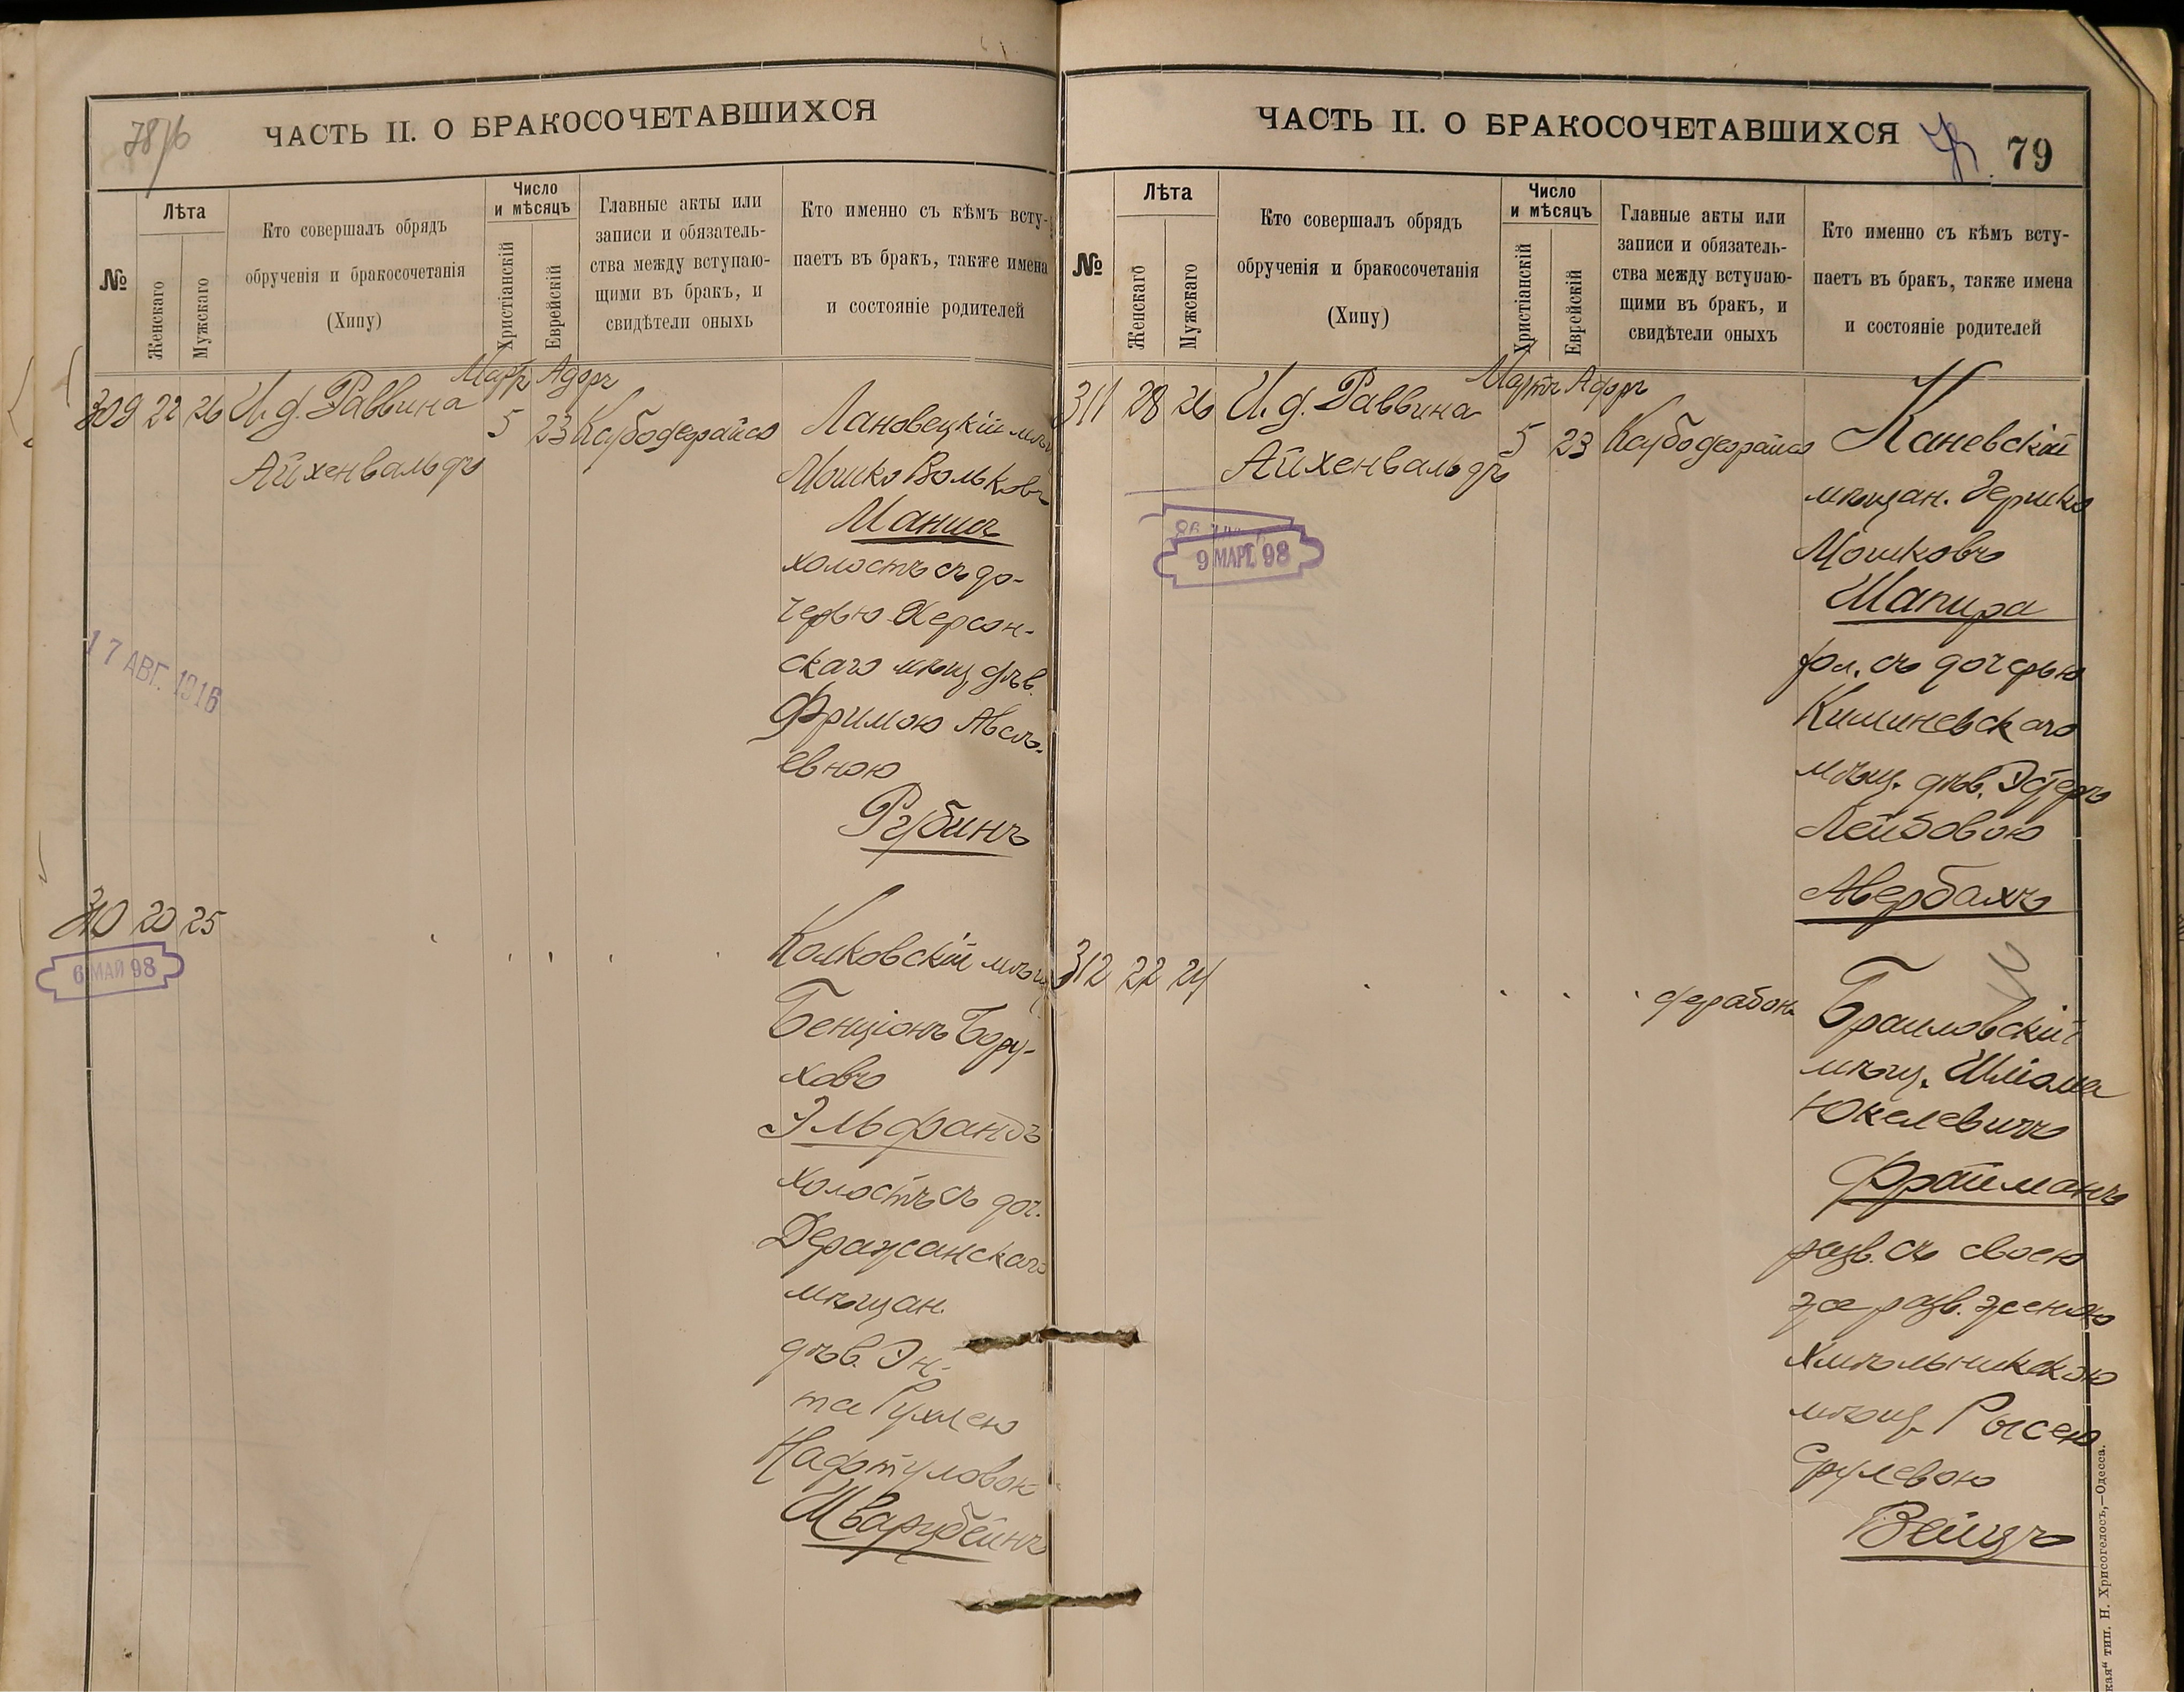 78/б
ЧАСТЬ II. О БРАКОСОЧЕТАВШИХСЯ
№
Лѣта
Женскаго
Мужскаго
Кто совершалъ обрядъ
обрученія и бракосочетанія
(Хипу)
Число
и мѣсяцъ
Христіанскій
Еврейскій
Главные акты или
записи и обязатель-
ства между вступаю-
щими въ бракъ, и
свидѣтели оныхъ
Кто именно съ кѣмъ всту-
паетъ въ бракъ, также имена
и состояніе родителей
Мартъ Адоръ
309 22 26 И. д. Раввина
Айхенвальдъ
5 23 Каубодефайсо
Лановецкій мѣщ
Мошко Вольковъ
Манисъ
холостъ съ до-
черью Херсон-
скаго мѣщ. дѣв.
Фримою Авсѣ-
евною
Рубинъ
17 АВГ. 1916
310 20 25
6 МАЙ 98
Колковскій мѣщ
Бенціонъ Бору-
ховъ
Эльфандъ
холостъ съ доч.
Деражанскаго
мѣщан.
дѣв. Эн-
та Рухлею
Нафтуловою
Шварцбейнъ
ЧАСТЬ II. О БРАКОСОЧЕТАВШИХСЯ
79
№
Лѣта
Женскаго
Мужскаго
Кто совершалъ обрядъ
обрученія и бракосочетанія
(Хипу)
Число
и мѣсяцъ
Христіанскій
Еврейскій
Главные акты или
записи и обязатель-
ства между вступаю-
щими въ бракъ, и
свидѣтели оныхъ
Кто именно съ кѣмъ всту-
паетъ въ бракъ, также имена
и состояніе родителей
Мартъ Адоръ
311 28 26 И. д. Раввина
Айхенвальдъ
5 23 Каубодефайсо
9 МАРТ. 98
Каневскій
мѣщан. Гершко
Мошковъ
Шапира
хол. съ дочерью
Кишиневскаго
мѣщ. дѣв. Эстеръ
Лейбовою
Авербахъ
312 22 24
дерабон.
Браиловскій
мѣщ. Шліома
Юкелевичъ
Фрайманъ
разв. съ своею
же разв. женою
Хмѣльникскою
мѣщ. Рысею
Срулевою
Вейцъ
кая“ тип. Н. Хрисогелосъ,—Одесса.